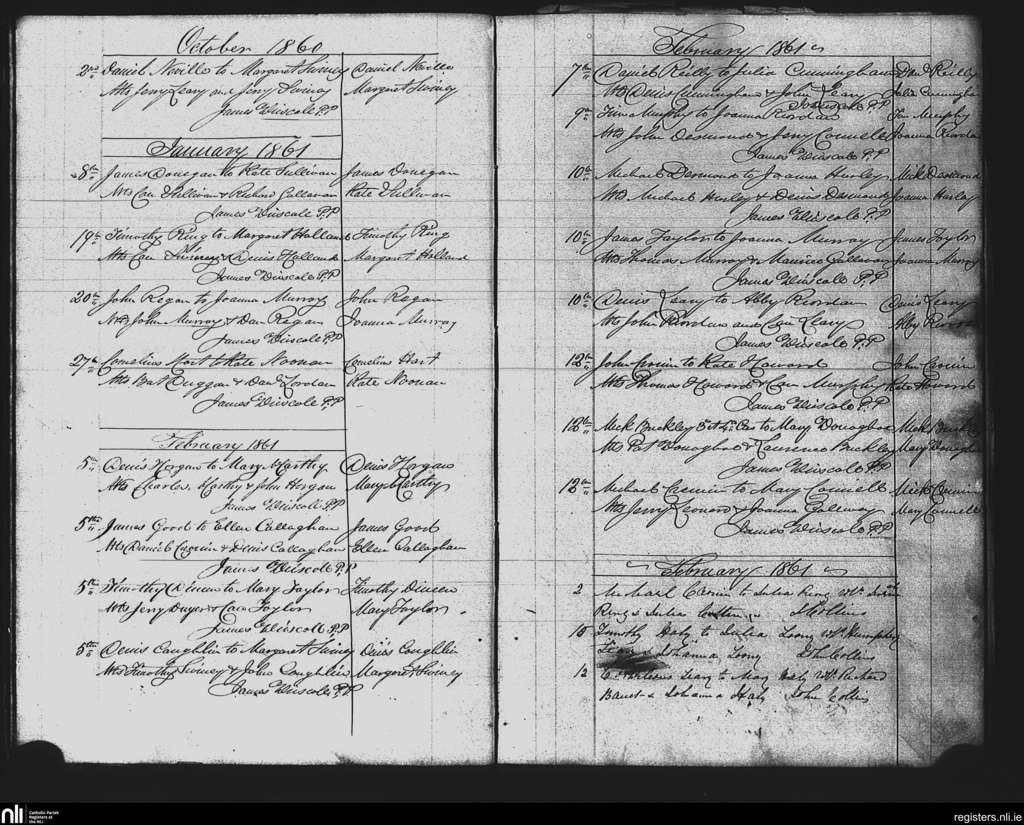 October 1860
2nd Daniel Neville to Margaret Swiney Daniel Neville
Wts Jerry Leary and Jerry Swiney Margaret Swiney
James Driscole P.P
January 1861
8th James Donegan to Kate Sullivan James Donegan
Wts Con Sullivan & Richard Callanan Kate Sullivan
James Driscole P.P
19th Timothy Ring to Margaret Holland Timothy Ring
Wts Con & Denis Holland Margaret Holland
James Driscole P.P
20th John Regan to Joanna Murray John Regan
Wts John Murray & Dan Regan Joanna Murray
James Driscole P.P
27th Cornelius Hart to Kate Noonan Cornelius Hart
Wts Bat Duggan & Dan Riordan Kate Noonan
James Driscole P.P
February 1861
5th Denis Horgan to Mary McCarthy Denis Horgan
Wts Charles McCarthy & John Horgan Mary McCarthy
James Driscole P.P
5th James Good to Ellen Callaghan James Good
Wts Daniel Cronin & Denis Callaghan Ellen Callaghan
James Driscole P.P
5th Timothy Dineen to Mary Taylor Timothy Dineen
Wts Jerry Dwyer & Con Taylor Mary Taylor
James Driscole P.P
5th Denis Coughlin to Margaret Swiney Denis Coughlin
Wts Timothy Swiney & John Coughlin Margaret Swiney
James Driscole P.P
February 1861
7th Daniel Reilly to Julia Cunningham Dan Reilly
Wts Denis Cunningham & John Leary Julia Cunningham
James Driscole P.P
9th Tim Murphy to Joanna Riordan Tim Murphy
Wts John Desmond & Jerry Connell Joanna Riordan
James Driscole P.P
10th Michael Desmond to Joanna Hurley Mick Desmond
Wts Michael Hurley & Denis Desmond Joanna Hurley
James Driscole P.P
10th James Taylor to Joanna Murray James Taylor
Wts Thomas Murray & Maurice Galloway Joanna Murray
James Driscole P.P
10th Denis Leary to Abby Riordan Denis Leary
Wts John Riordan and Con Leary Abby
James Driscole P.P
12th John Cronin to Kate Howard John Cronin
Wts Thomas Howard & Con Murphy Kate Howard
James Driscole P.P
12th Mick Buckley to Mary Donoghoe Mick Buckley
Wts Pat Donoghoe & Laurence Buckley Mary Donoghoe
James Driscole P.P
12th Michael Cremin to Mary Connell Mick Cremin
Wts Jerry Leonard & Joanna Galloway Mary Connell
James Driscole P.P
February 1861
2 Michael Cronin to Julia Ring Wts
Ring & Julia J Collins
10 Timothy Haly to Julia Long Wts Humphry
Leary & Johanna Long John Collins
12 Leary to Mary Haly Wts Richard
& Johanna Haly John Collins
nli
Catholic Parish
Registers at
the NLI
registers.nli.ie